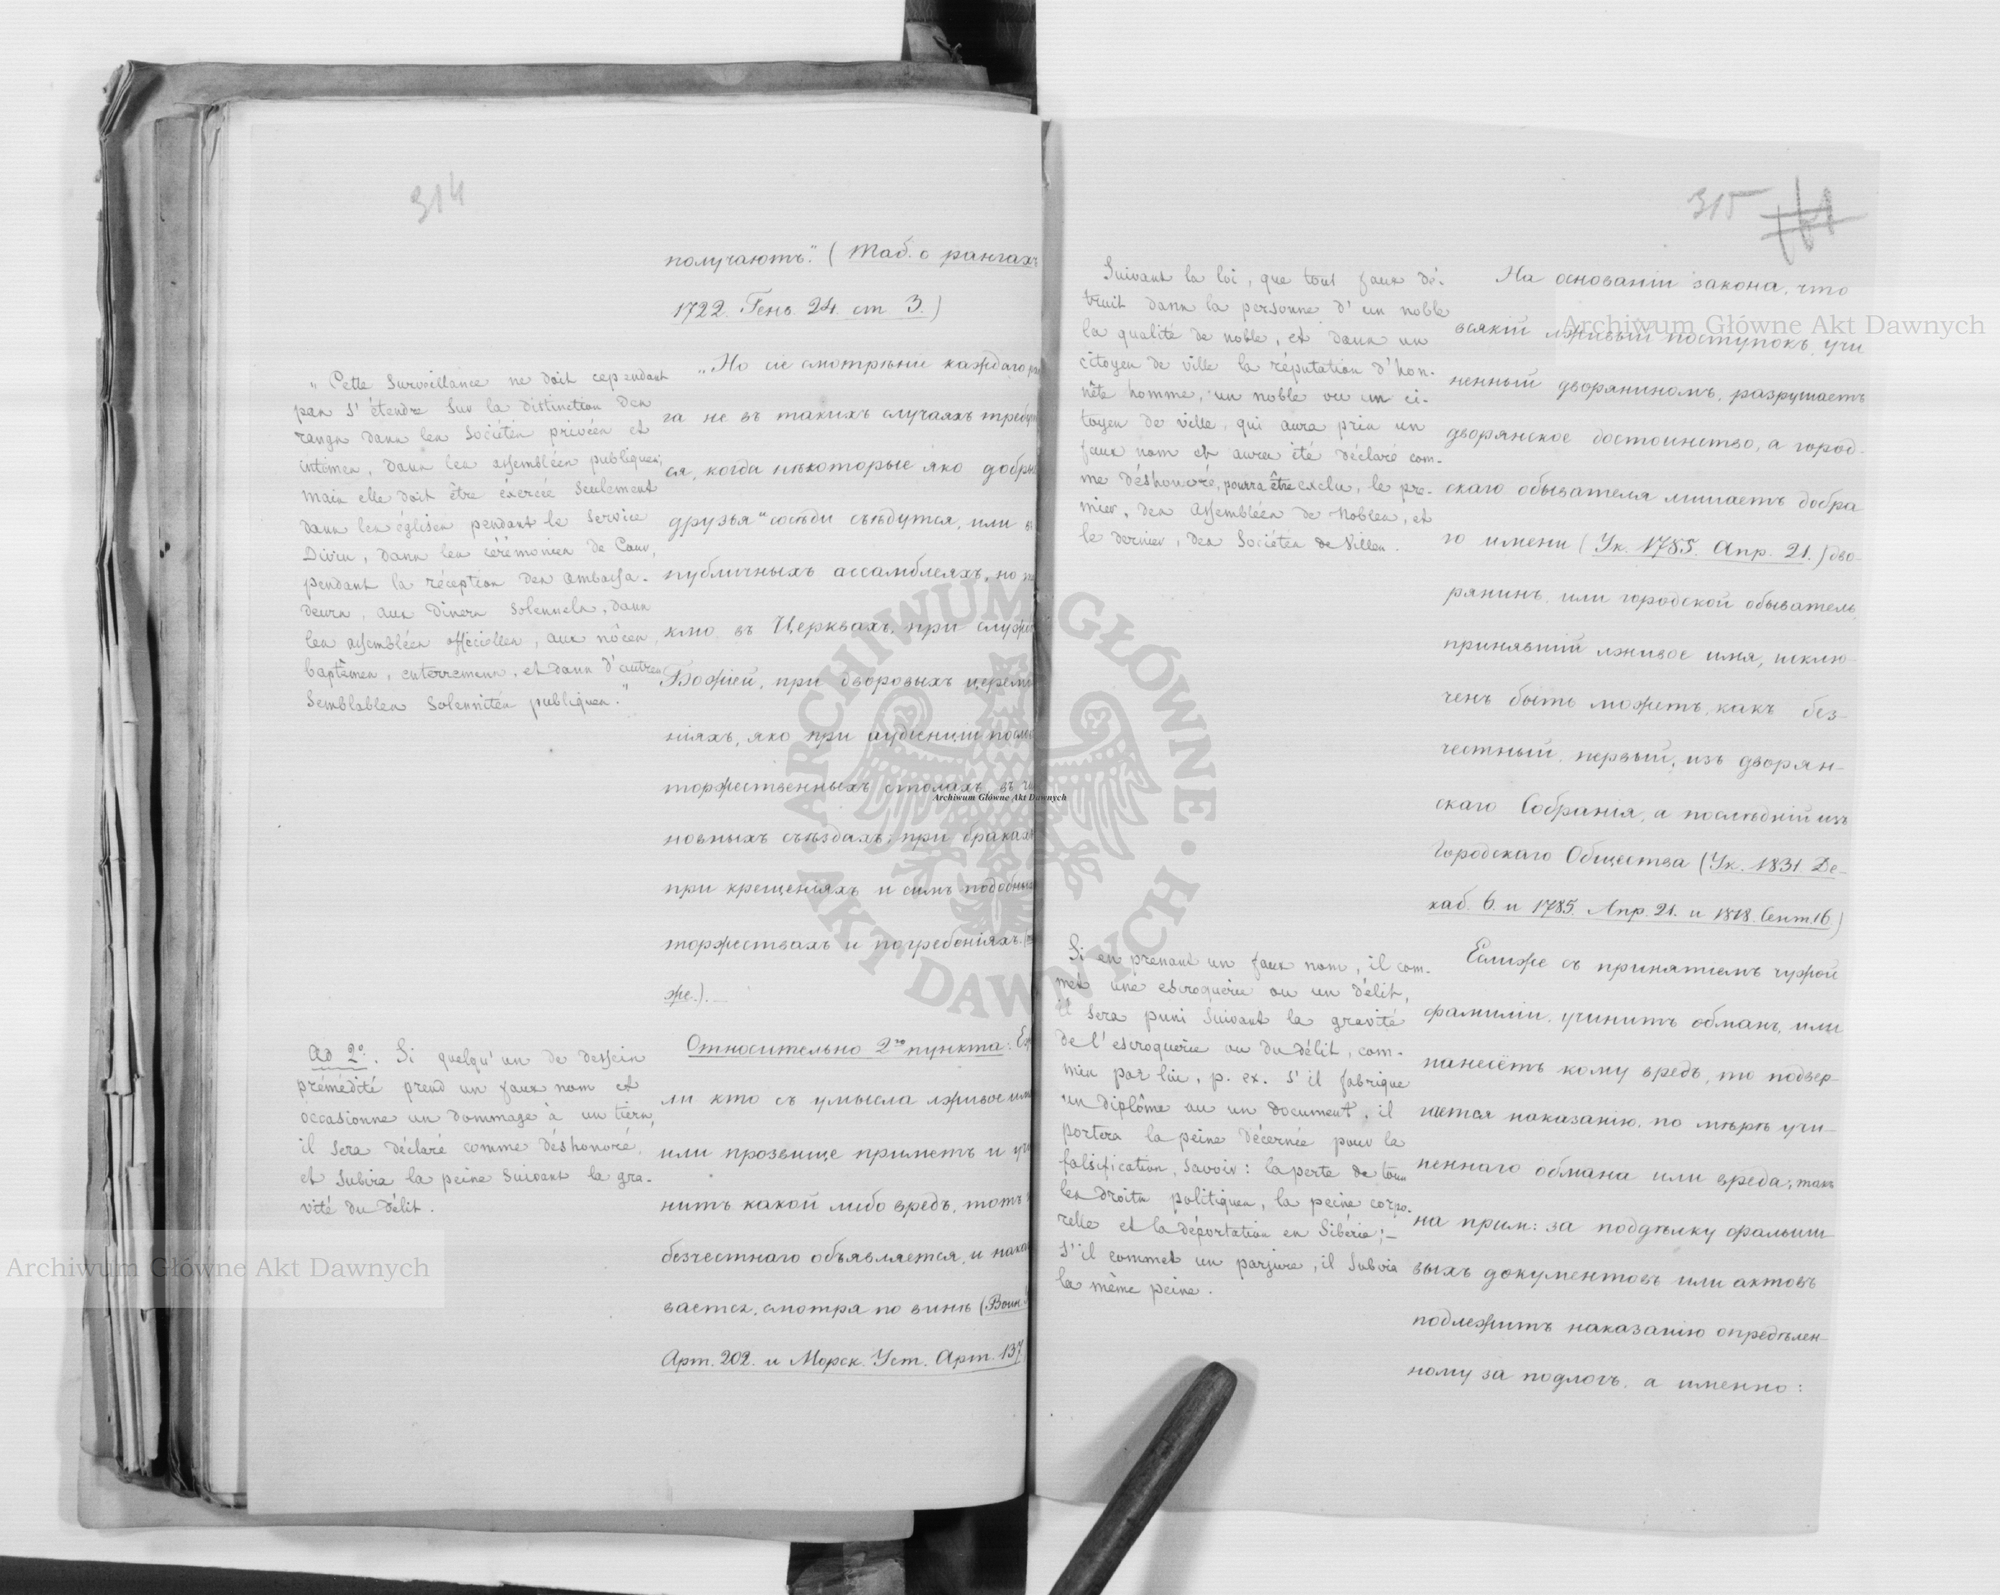 314
„Cette Surveillance ne doit cependant
pas s'étendre sur la distinction des
rangs dans les Sociétés privées et
intimes, dans les assemblées publiques;
mais elle doit être éxercée seulement
dans les églises pendant le Service
Divin, dans les cérémonies de Cour,
pendant la réception des Ambassa-
deurs, aux Diners Solennels, dans
les assemblées officielles, aux nôces,
baptêmes, enterremens, et dans d'autres
Semblables Solennités publiques."
Ad 2º. Si quelqu'un de dessein
prémédité prend un faux nom et
occasionne un dommage à un tiers,
il sera déclaré comme déshonoré,
et subira la peine suivant la gra-
vité du délit.
получаютъ." (Таб. о рангахъ
1722. Генв. 24. ст 3.)
„Но сіе смотрѣніе каждаго
га не въ такихъ случаяхъ
ся, когда нѣкоторые яко
друзья и сосѣди съѣдутся, или
публичныхъ ассамблеяхъ, но
кмо въ Церквахъ, при
Божіей, при дворовыхъ
ніяхъ, яко при аудіенціи
торжественныхъ столахъ, въ
новныхъ съѣздахъ, при бракахъ
при крещеніяхъ и симъ
торжествахъ и погребеніяхъ.
же.).—
Относительно 2го пункта.
ли кто съ умысла лживое
или прозвище приметъ и
нитъ какой либо вредъ, тотъ
безчестнаго объявляется, и
вается, смотря по винѣ (Воин.
Арт. 202. и Морск. Уст. Арт. 137
315
Suivant la loi, que tout faux dé-
truit dans la personne d'un noble
la qualité de noble, et dans un
citoyen de ville la réputation d'hon-
nête homme, un noble ou un ci-
toyen de ville, qui aura pris un
faux nom et aura été déclaré com-
me déshonoré, pourra être exclu, le pre-
mier, des Assemblées de Nobles, et
le dernier, des Sociétés de Villes.
Si en prenant un faux nom, il com-
met une escroquerie ou un délit,
il sera puni suivant la gravité
de l'escroquerie ou du délit, com-
mis par lui, p. ex. s'il fabrique
un diplôme ou un document, il
portera la peine décernée pour la
falsification, savoir: la perte de tous
les droits politiques, la peine corpo-
relle et la déportation en Sibérie;—
S'il commet un parjure, il subira
la même peine.
На основаніи закона, что
всякій лживый поступокъ, учи
ненный дворяниномъ, разрушаетъ
дворянское достоинство, а город-
скаго обывателя лишаетъ добра
го имени (Ук. 1785. Апр. 21.) дво-
рянинъ или городской обыватель,
принявшій лживое имя, исклю-
ченъ быть можетъ, какъ без-
честный, первый, изъ дворян-
скаго Собранія, а послѣдній изъ
Городскаго Общества (Ук. 1831. Де-
каб. 6. и 1785. Апр. 21. и 1818. Сент. 16)
Еслиже съ принятіемъ чужой
фамиліи, учинитъ обманъ, или
нанесётъ кому вредъ, то подвер-
гается наказанію, по мѣрѣ учи-
неннаго обмана или вреда; такъ
на прим: за поддѣлку фальши-
выхъ документовъ или актовъ
подлежитъ наказанію опредѣлен-
ному за подлогъ, а именно:
Archiwum Główne Akt Dawnych
Archiwum Główne Akt Dawnych
Archiwum Główne Akt Dawnych
ARCHIWUM GŁÓWNE · AKT DAWNYCH ·